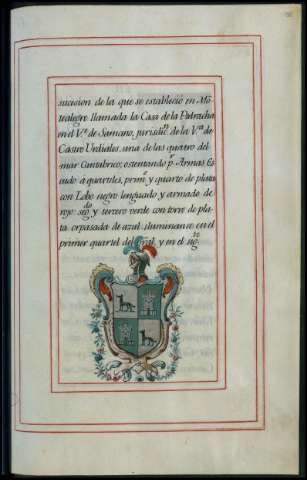 sucision de la que se estableció en Mo
tealegre llamada la Casa de la Pedracha
en el V.e de Samano, jurisdic.n de la V.a de
Castro Urdiales, una de las quatro del
mar Cantabrico; ostentando p.r Armas Es
cudo á quarteles, prim.o y quarto de plata
con Lobo negro lenguado y armado de
rojo: seg.do y tercero verde con torre de pla
ta orpasada de azul: iluminanse en el
primer quartel del y en el sig.te